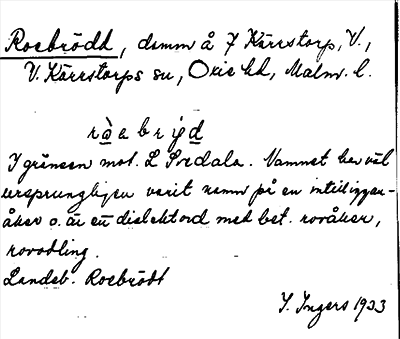 Roebrödd, damm å 7 Kärrstorp, V.,
V. Kärrstorps sn, Oxie hd, Malm. l.
ràebrýd
I gränsen mot L Svedala. Namnet har väl
ursprungligen varit namn på en intilliggan-
de åker o. är ett dialektord med bet. rovåker,
rovodling.
Landsb. Roebrödt
I. Ingers 1933